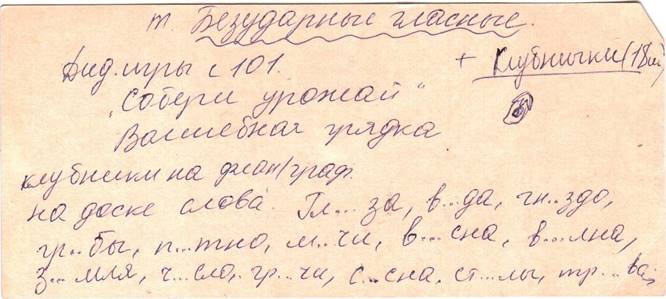 т. Безударные гласные.
Дид. игры с 101. + Клубнички (18 шт)
"Собери урожай"
Волшебная грядка
клубники на флан/граф.
на доске слова: Гл...за, в..да, гн..здо,
гр..бы, п..тно, м..чи, в...сна, в...лна,
з...мля, ч..сло, гр..чи, с..сна, ст..лы, тр...ва,